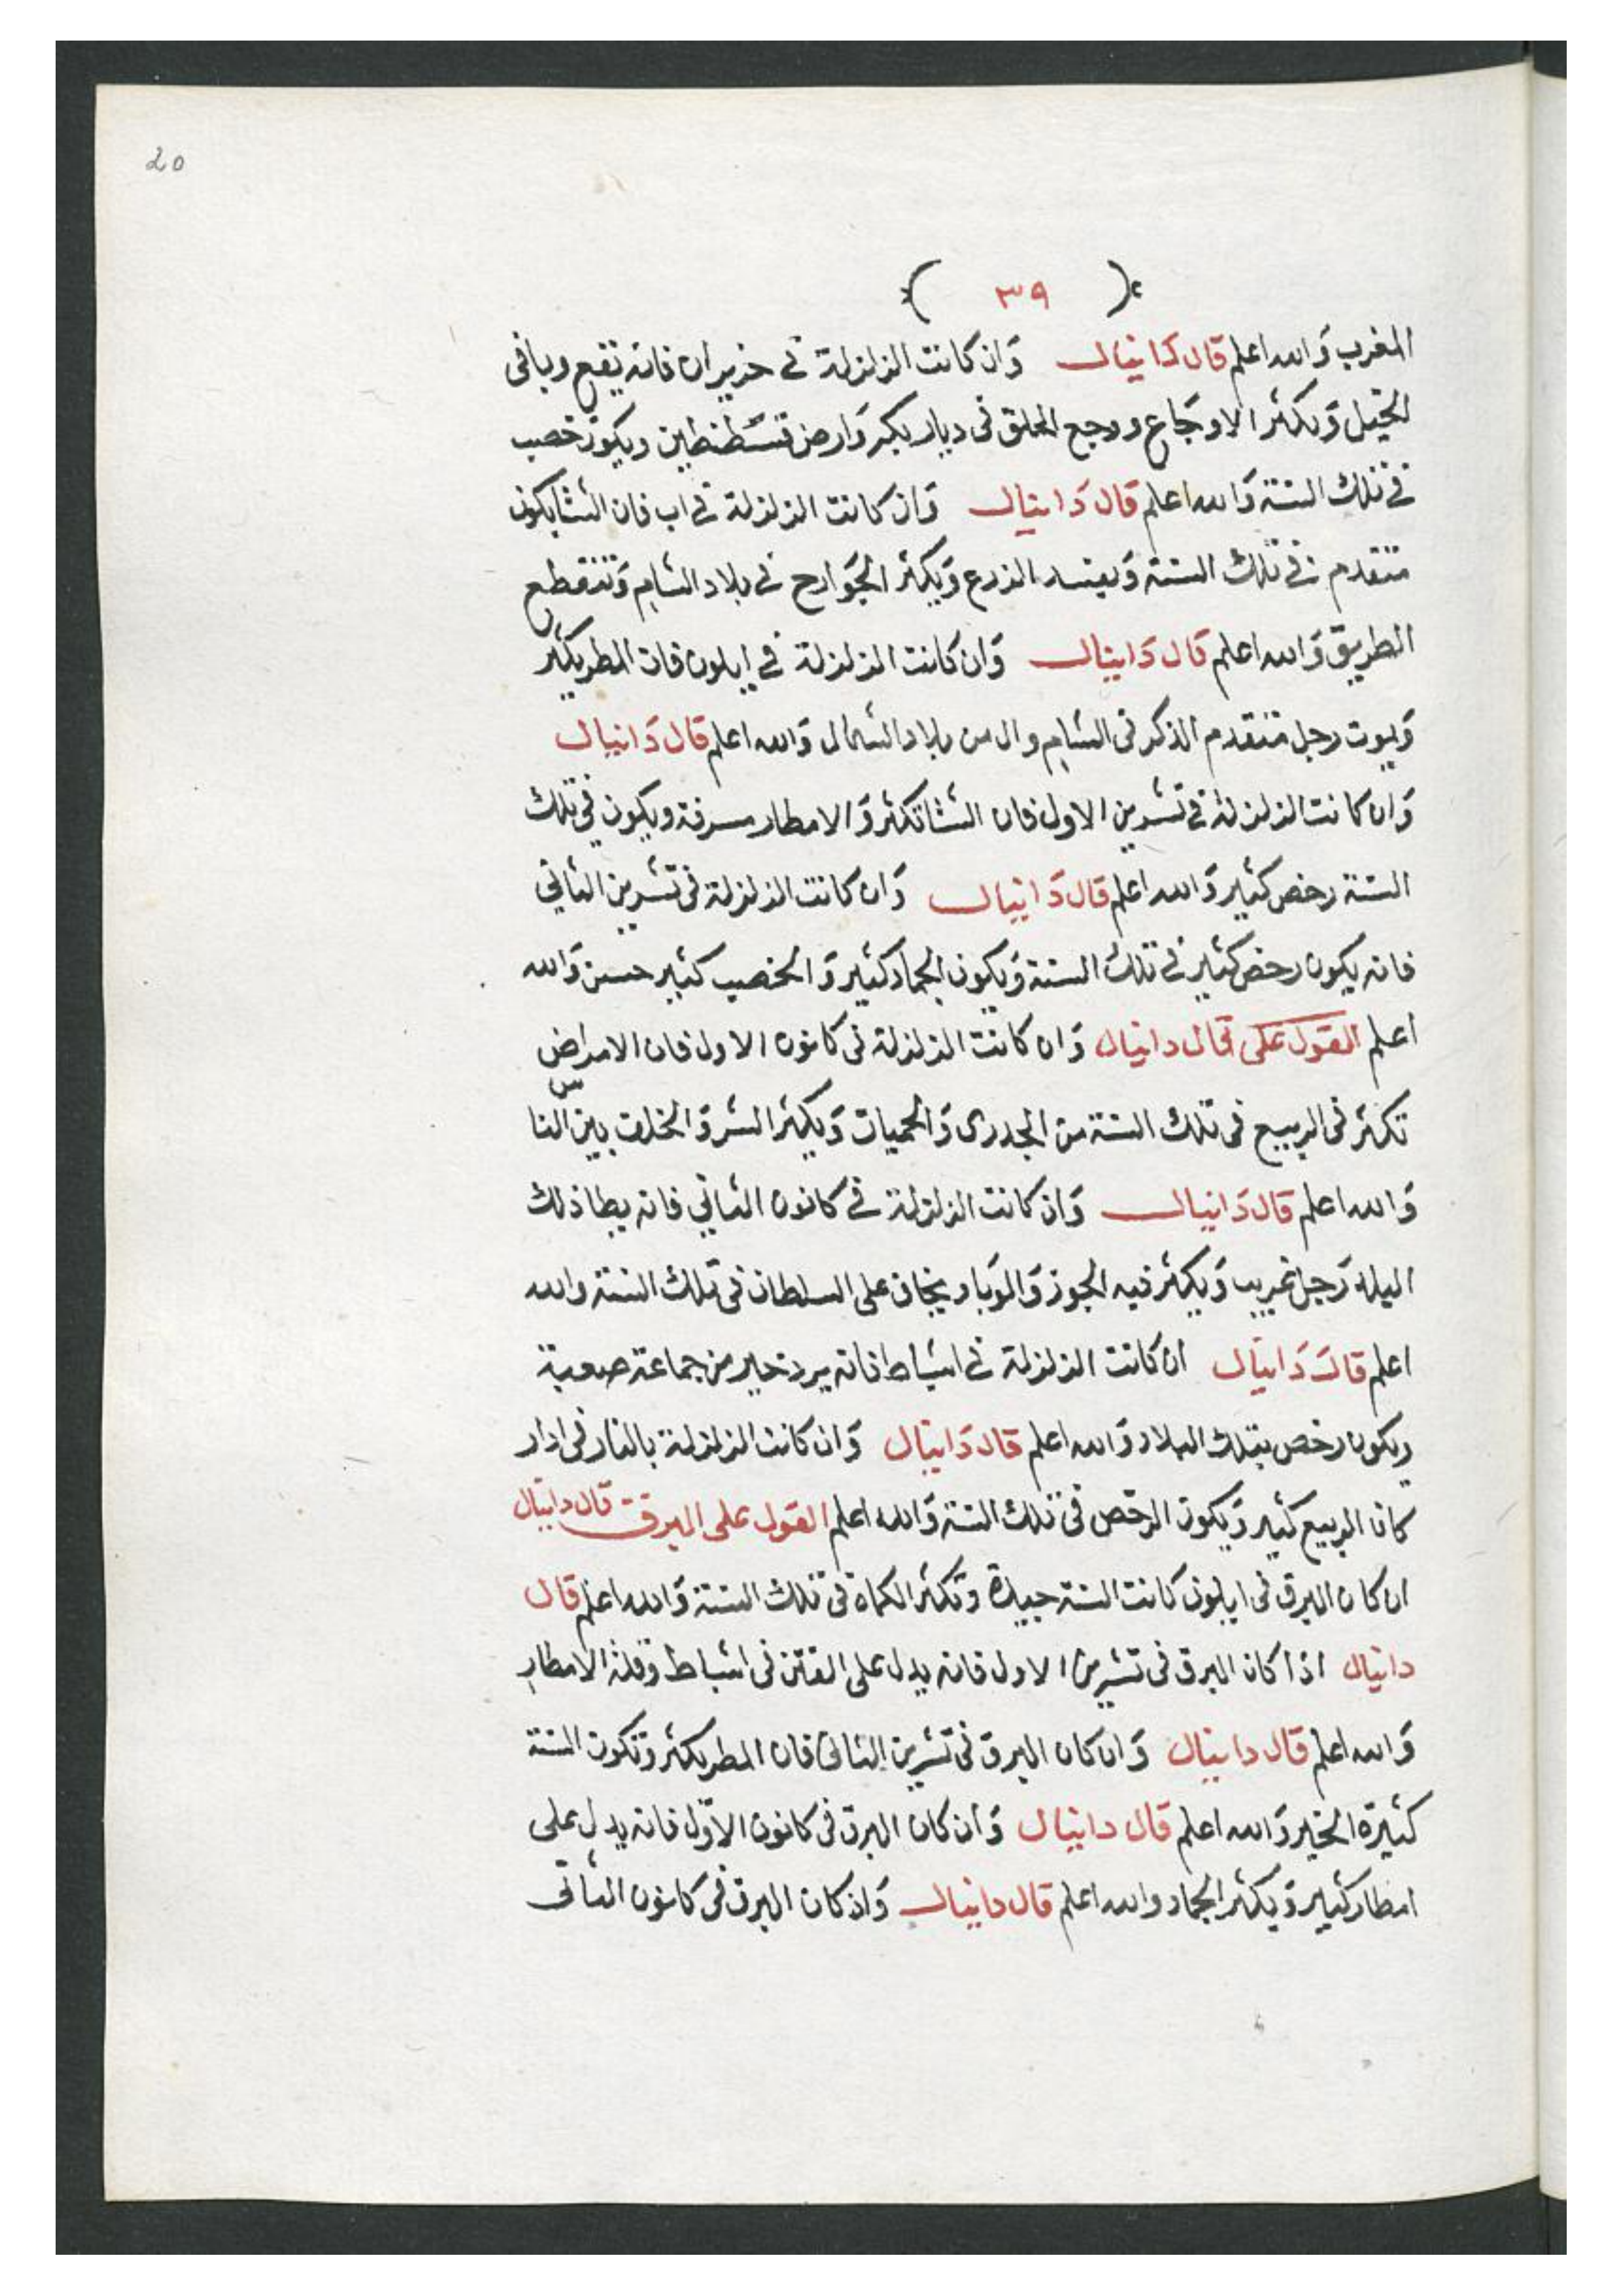 20
( ٣٩ )
المغرب وَالله اعلم قال دانيال وَان كانت الزلزلة في حزيران فانه يقع وبا في
الخيل وَيكثر الاوجَاع ووجع الحلق في ديار بكر وَارض قسطنطين ويكون خصب
في تلك السنة وَالله اعلم قال دَانيال وَان كانت الزلزلة في اب فان الشتا يكون
متقدم في تلك السنة وَيفسد الزرع وَيكثر الجوَارح في بلاد الشام وَتنقطع
الطريق وَالله اعلم قال دَانيال وَان كانت الزلزلة في ايلون فان المطر يكثر
وَيموت رجل متقدم الذكر في الشام وال من بلاد الشمال وَالله اعلم قال دَانيال
وَان كانت الزلزلة في تشرين الاول فان الشتا تكثر وَالامطار مسرفة ويكون في تلك
السنة رخص كثير وَالله اعلم قال دَانيال وَان كانت الزلزلة في تشرين الثاني
فانه يكون رخص كثير في تلك السنة وَيكون الجماد كثير وَالخصب كثير حسن وَالله
اعلم القول على قال دانيال وَان كانت الزلزلة في كانون الاول فان الامراض
تكثر في الربيع في تلك السنة من الجدرى وَالحميات وَيكثر الشر وَالخلف بين الناس
وَالله اعلم قال دَانيال وَان كانت الزلزلة في كانون الثاني فانه يطا ذلك
اليله رَجل غريب وَيكثر فيه الجوز وَالوَبا ويخاف على السلطان في تلك السنة والله
اعلم قال دَانيال ان كانت الزلزلة في اشباط فانه يرد خير من جماعة صعبة
ويكون رخص بتلك البلاد وَالله اعلم قال دَانيال وَان كانت الزلزلة بالنار في ادار
كان الربيع كثير وَيكون الرخص في تلك السنة وَالله اعلم القول على البرق قال دانيال
ان كان البرق في ايلون كانت السنة جيدة وتكثر الكماة في تلك السنة وَالله اعلم قال
دانيال اذا كان البرق في تشرين الاول فانه يدل على الفتن في اشباط وقلة الامطار
وَالله اعلم قال دانيال وَان كان البرق في تشرين الثاني فان المطر يكثر وَتكون السنة
كثيرة الخير وَالله اعلم قال دانيال وَان كان البرق في كانون الاوّل فانه يدل على
امطار كثير وَيكثر الجماد والله اعلم قال دانيال وَان كان البرق في كانون الثانى